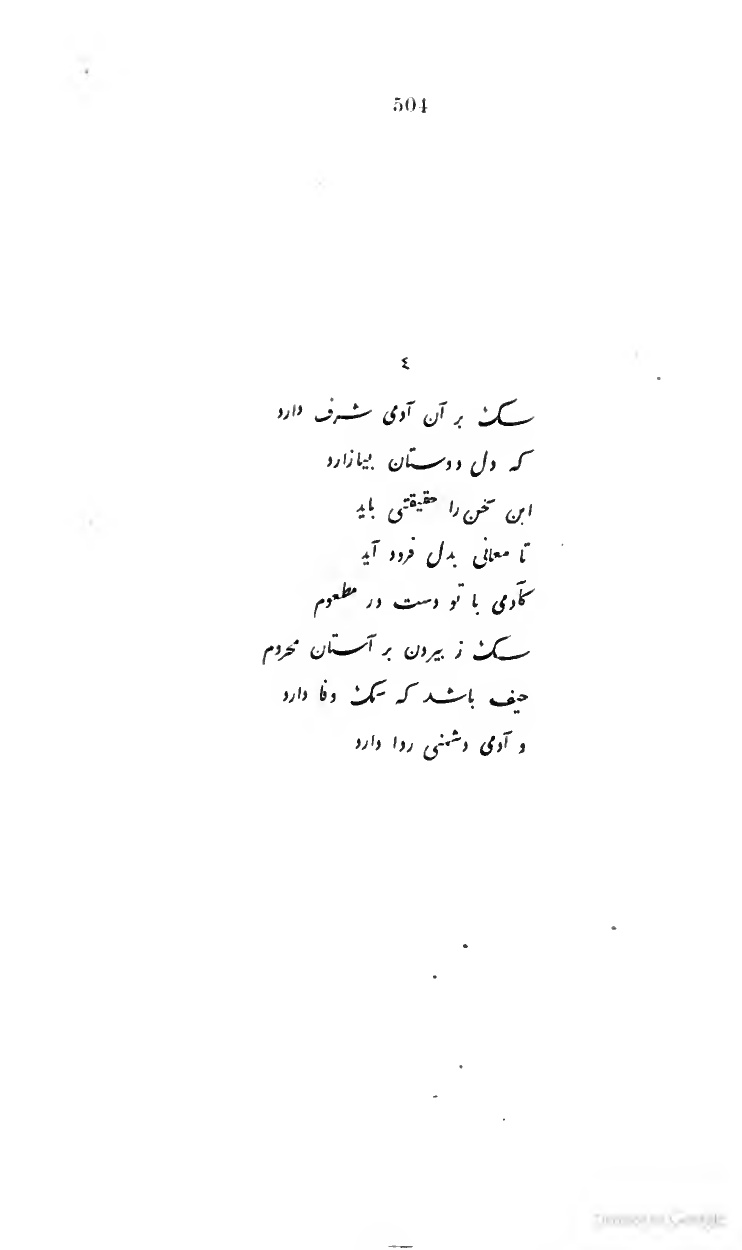 504
٤
سگ بر آن آدمی شرف دارد
که دل دوستان بیازارد
این سخن را حقیقتی باید
تا معانی بدل فرود آید
کآدمی با تو دست در مطعوم
سگ ز بیرون بر آستان محروم
حیف باشد که سگ وفا دارد
و آدمی دشمنی روا دارد
Digitized by Google